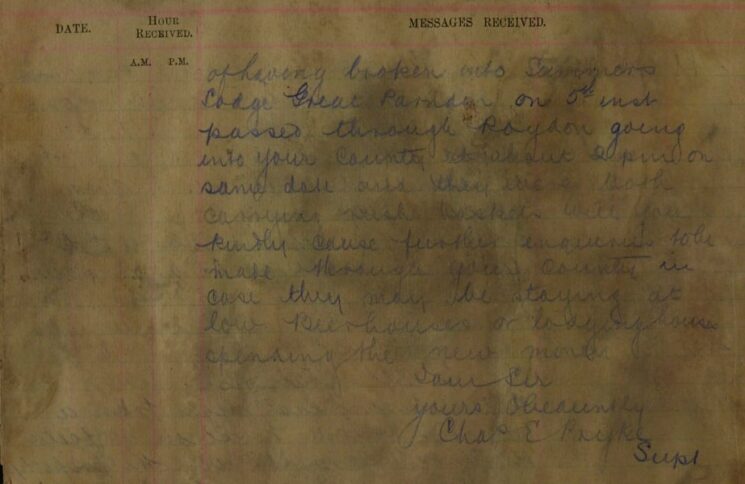 DATE.
HOUR RECEIVED.
MESSAGES RECEIVED.
A.M. P.M.
of having broken into Summers
Lodge Great Parndon on 5th inst
passed through Roydon going
into your County at about 2 pm on
same date and they were both
carrying rush baskets will you
kindly cause further enquiries to be
made through your County in
case they may be staying at
low Beerhouses or lodging houses
spending the new money
I am Sir
yours Obediently
Chas E Pryke
Supt